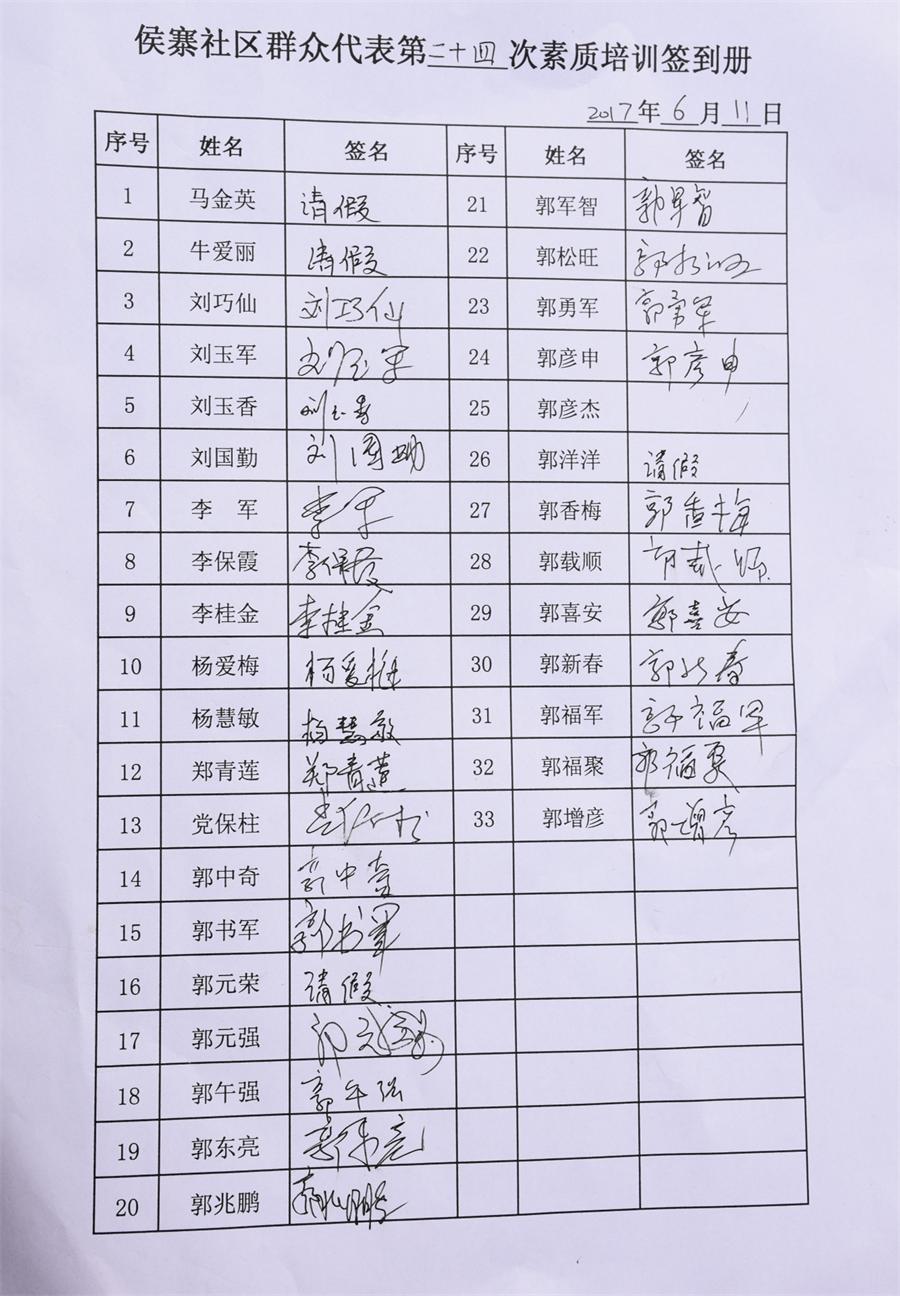 侯寨社区群众代表第二十四次素质培训签到册
2017年6月11日
序号 姓名 签名 序号 姓名 签名
1 马金英 请假 21 郭军智 郭军智
2 牛爱丽 请假 22 郭松旺 郭松旺
3 刘巧仙 刘巧仙 23 郭勇军 郭勇军
4 刘玉军 刘玉军 24 郭彦申 郭彦申
5 刘玉香 刘玉香 25 郭彦杰
6 刘国勤 刘国勤 26 郭洋洋 请假
7 李军 李军 27 郭香梅 郭香梅
8 李保霞 李保霞 28 郭载顺 郭载顺
9 李桂金 李桂金 29 郭喜安 郭喜安
10 杨爱梅 杨爱梅 30 郭新春 郭新春
11 杨慧敏 杨慧敏 31 郭福军 郭福军
12 郑青莲 郑青莲 32 郭福聚 郭福聚
13 党保柱 33 郭增彦 郭增彦
14 郭中奇 郭中奇
15 郭书军 郭书军
16 郭元荣 请假
17 郭元强 郭元强
18 郭午强 郭午强
19 郭东亮
20 郭兆鹏 郭兆鹏